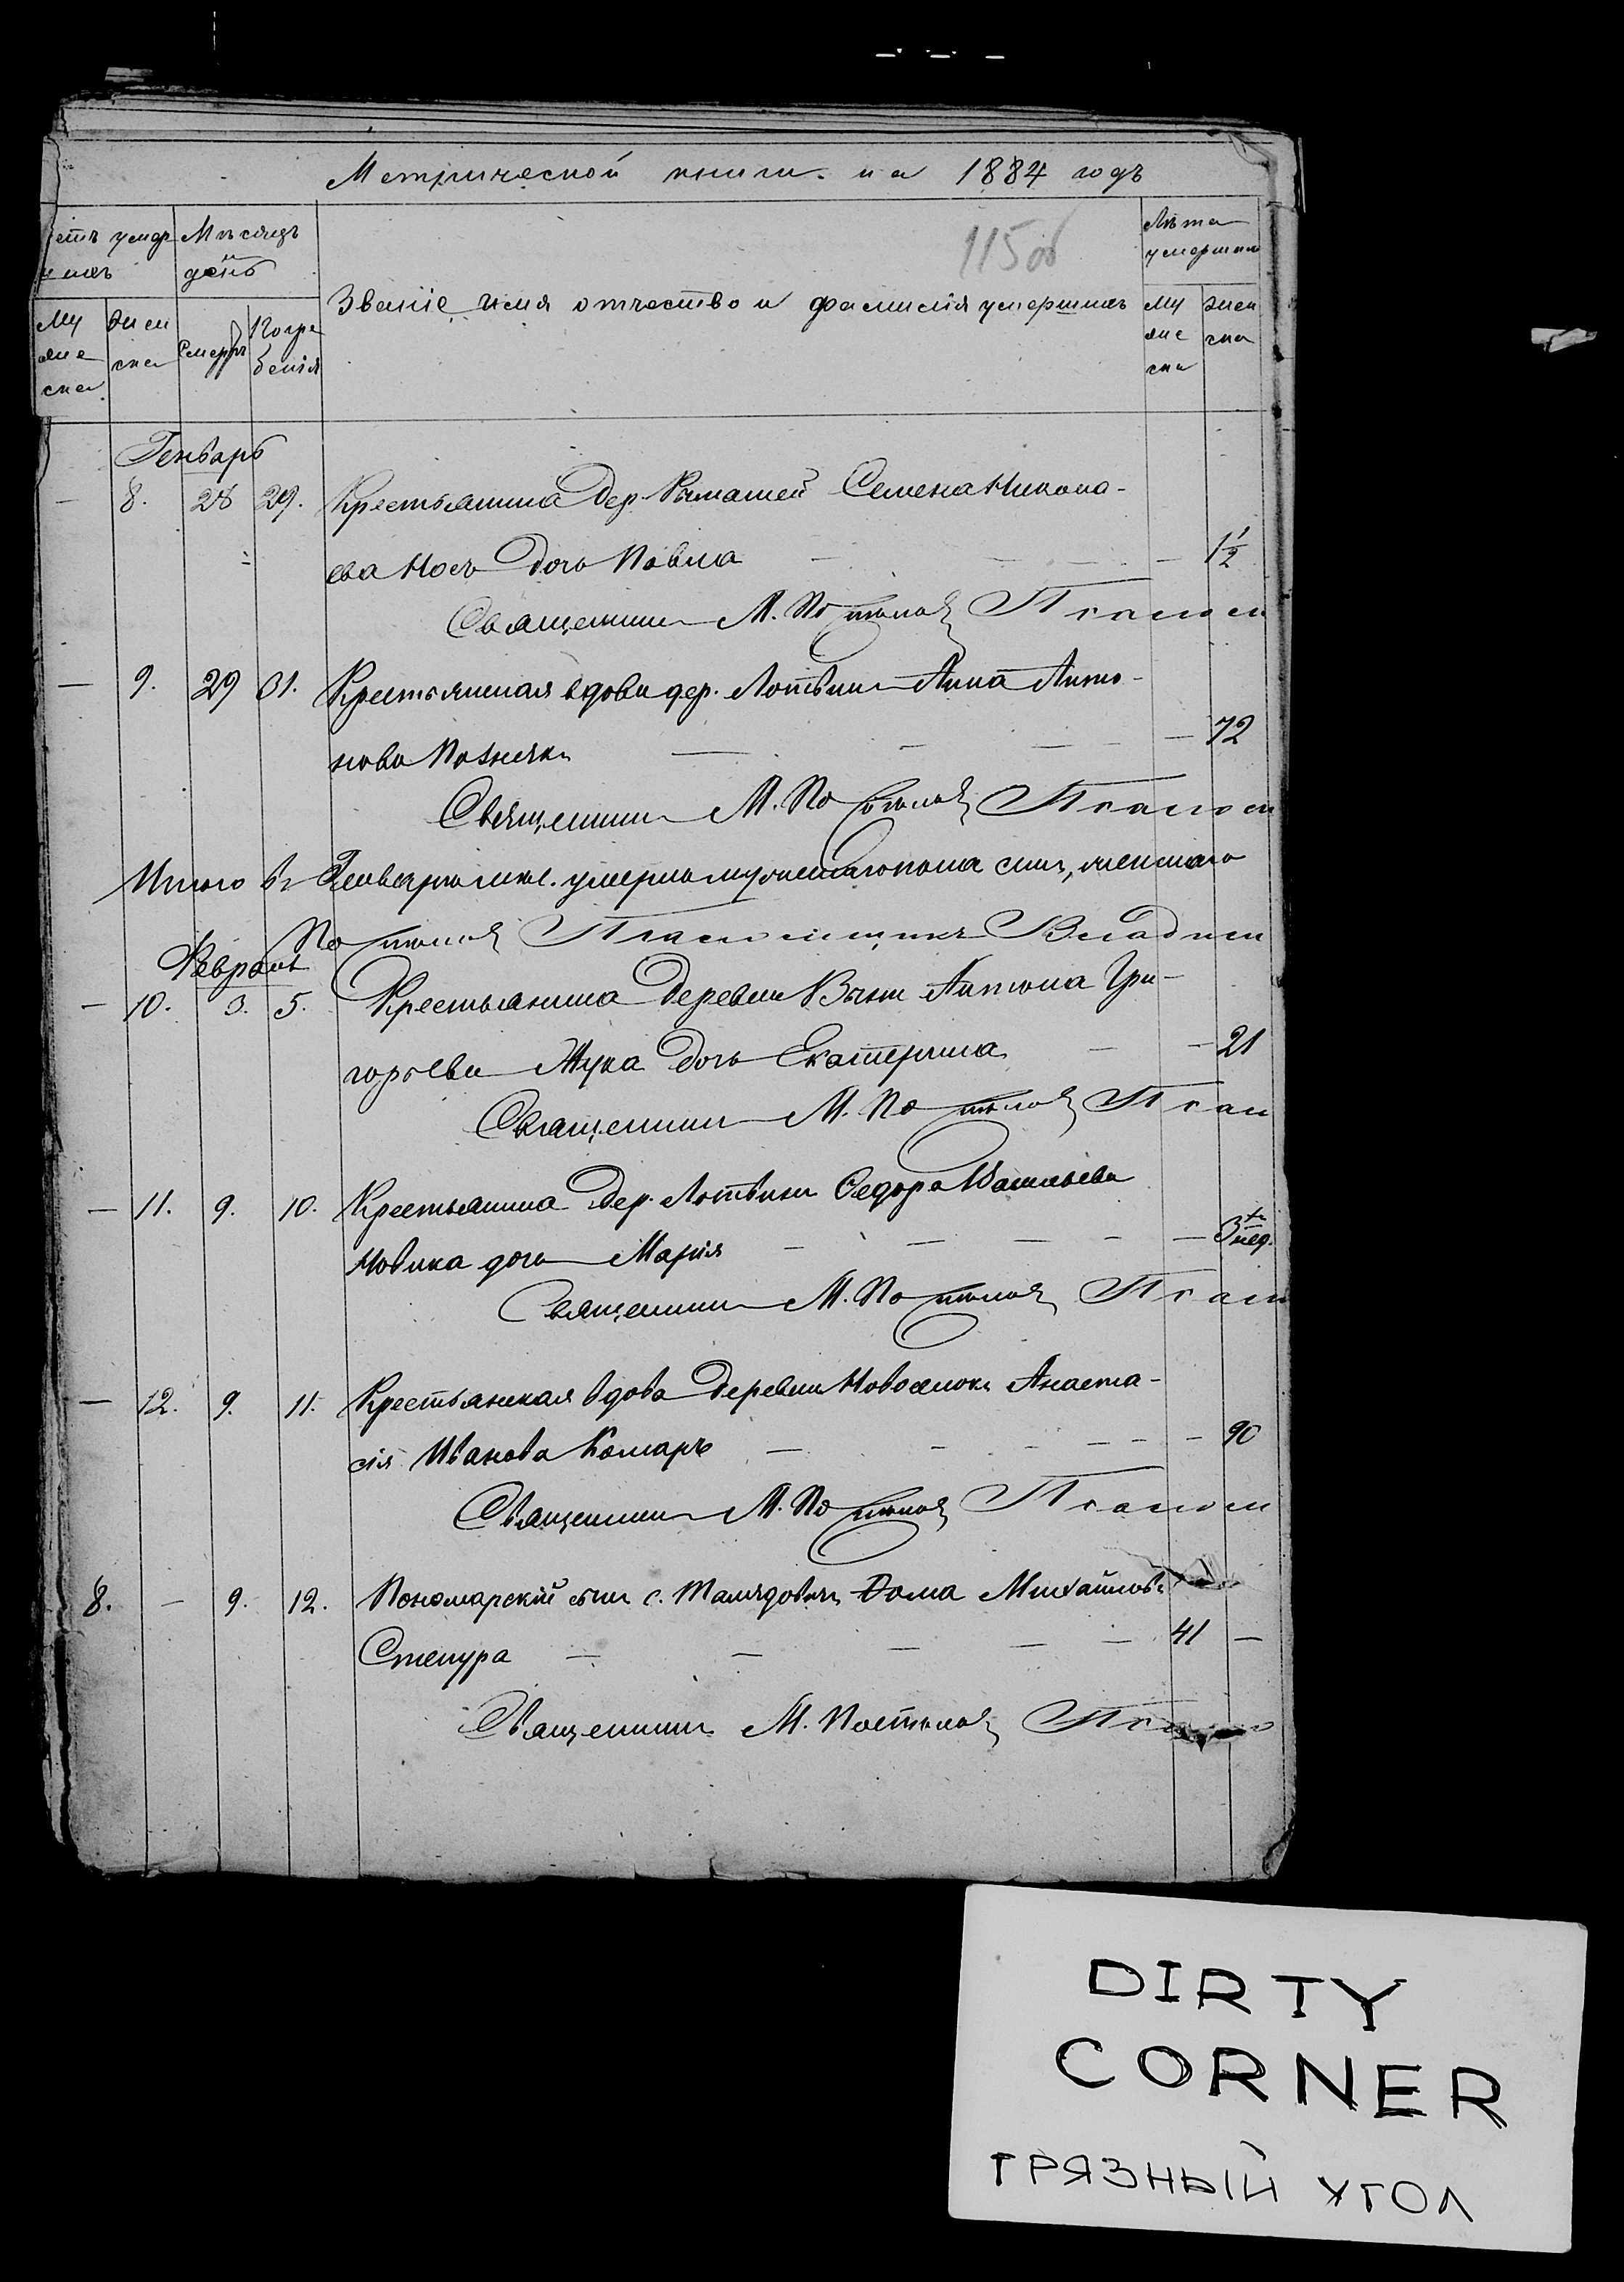 Метрической книги на 1884 годъ
115 об
етъ умер
шихъ
Мѣсяцъ
и
день
Званіе, имя отчество и фамилія умершихъ
Лѣта
умершихъ
Му
же
ска
Жен
ска
Смерти
Погре
бенія
Му
же
ска
Жен
ска
Генварь
— 8. 28 29. Крестьянина дер. Семена Никола-
ева Носъ дочь Павла — — 1 1/2
Священникъ М.
— 9. 29 31. Крестьянская вдова дер. Лотвины Анна Анто-
нова Позняки — — — — 72
Священникъ М.
Итого въ Генварѣ мѣс. умерло мужескаго пола семь, женскаго
Псаломщикъ
Февраль
— 10. 3. 5. Крестьянина деревни Антона Гри-
горьева Жука дочь Екатерина — — 21
Священникъ М.
— 11. 9. 10. Крестьянина дер. Лотвины Ѳедора Васильева
Новика дочь Марія — — — — — 3 нед.
Священникъ М.
— 12. 9. 11. Крестьянская вдова деревни Новоселокъ Анаста-
сія Иванова Комаръ — — — — — 90
Священникъ М.
8. — 9. 12. Пономарскій сынъ с. Ѳома Михайловъ
Степура — — — — — 41 —
Священникъ М.
DIRTY
CORNER
ГРЯЗНЫЙ УГОЛ